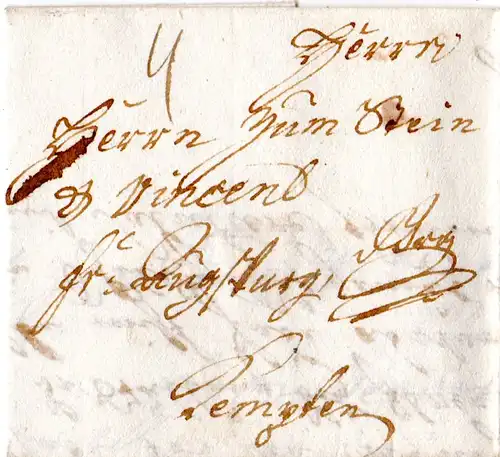 4
Herrn
Herrn Zum Stein
& Vincend
frc. Augsburg,
Kempten